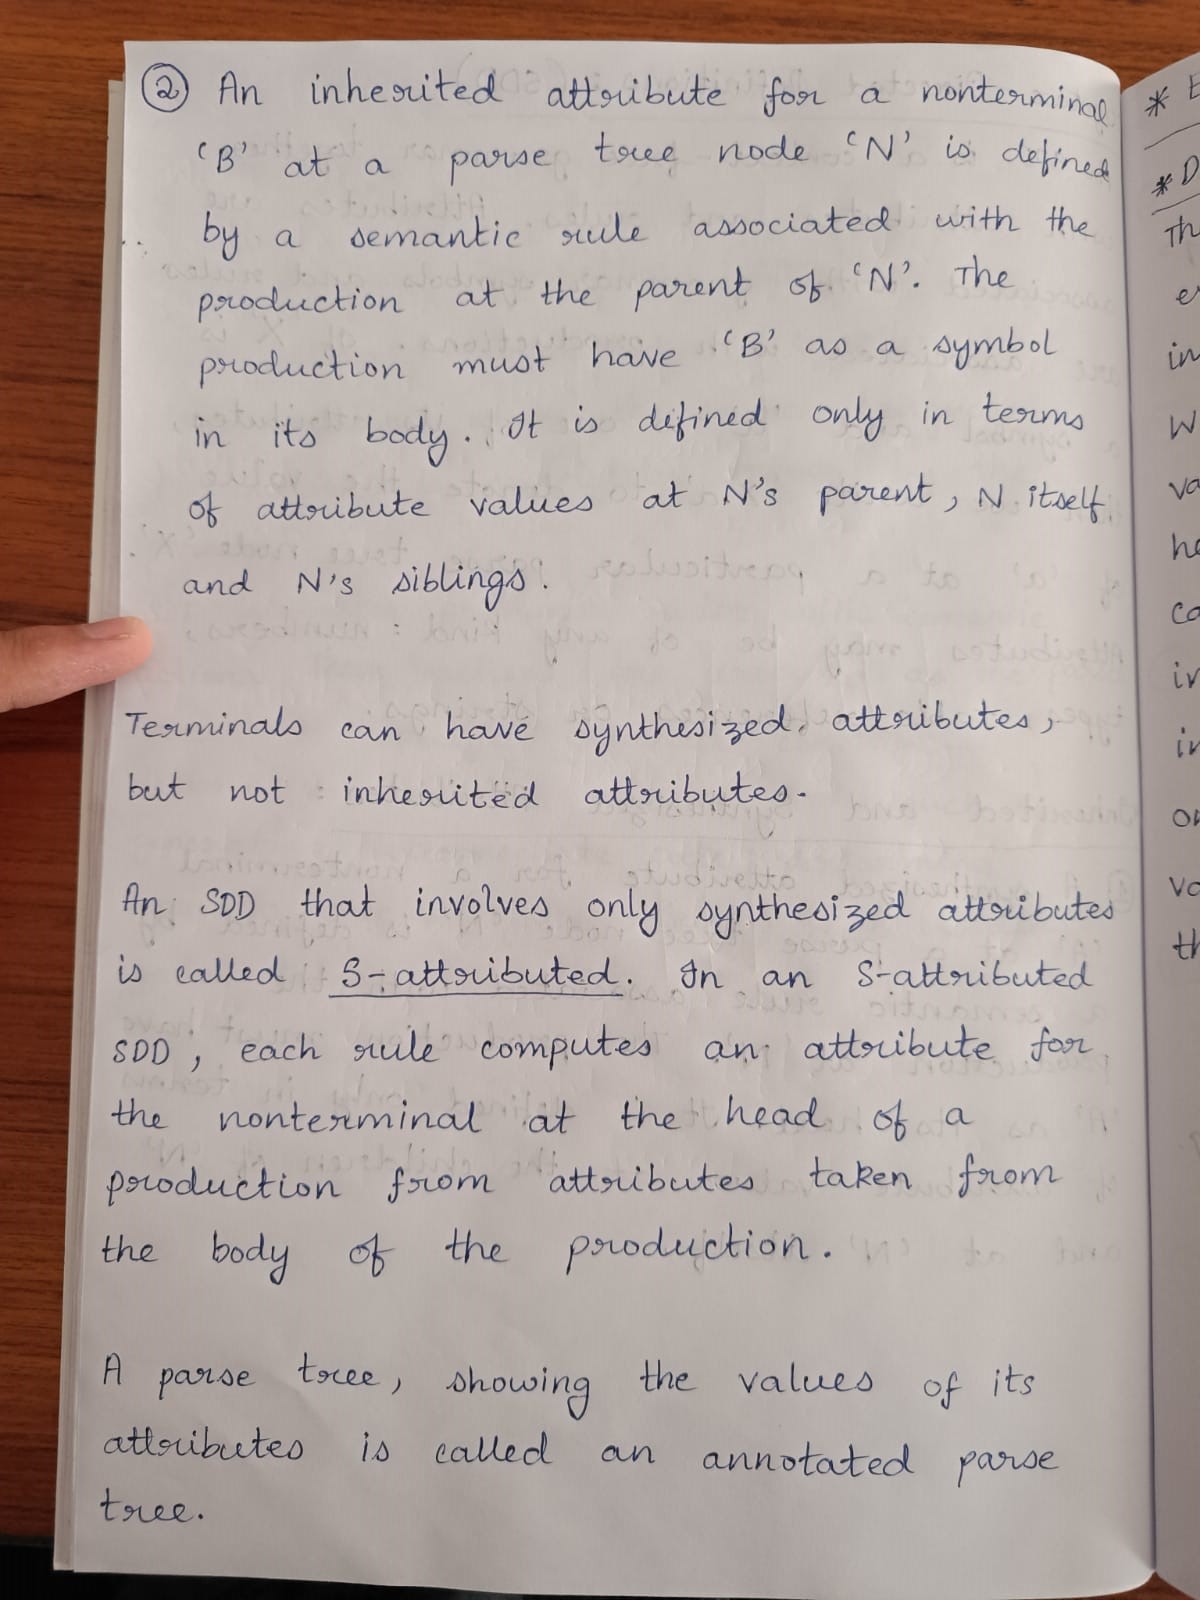 ② An inherited attribute for a nonterminal
'B' at a parse tree node 'N' is defined
by a semantic rule associated with the
production at the parent of 'N'. The
production must have 'B' as a symbol
in its body. It is defined only in terms
of attribute values at N's parent, N itself
and N's siblings.
Terminals can have synthesized attributes,
but not inherited attributes.
An SDD that involves only synthesized attributes
is called S-attributed. In an S-attributed
SDD, each rule computes an attribute for
the nonterminal at the head of a
production from attributes taken from
the body of the production.
A parse tree, showing the values of its
attributes is called an annotated parse
tree.